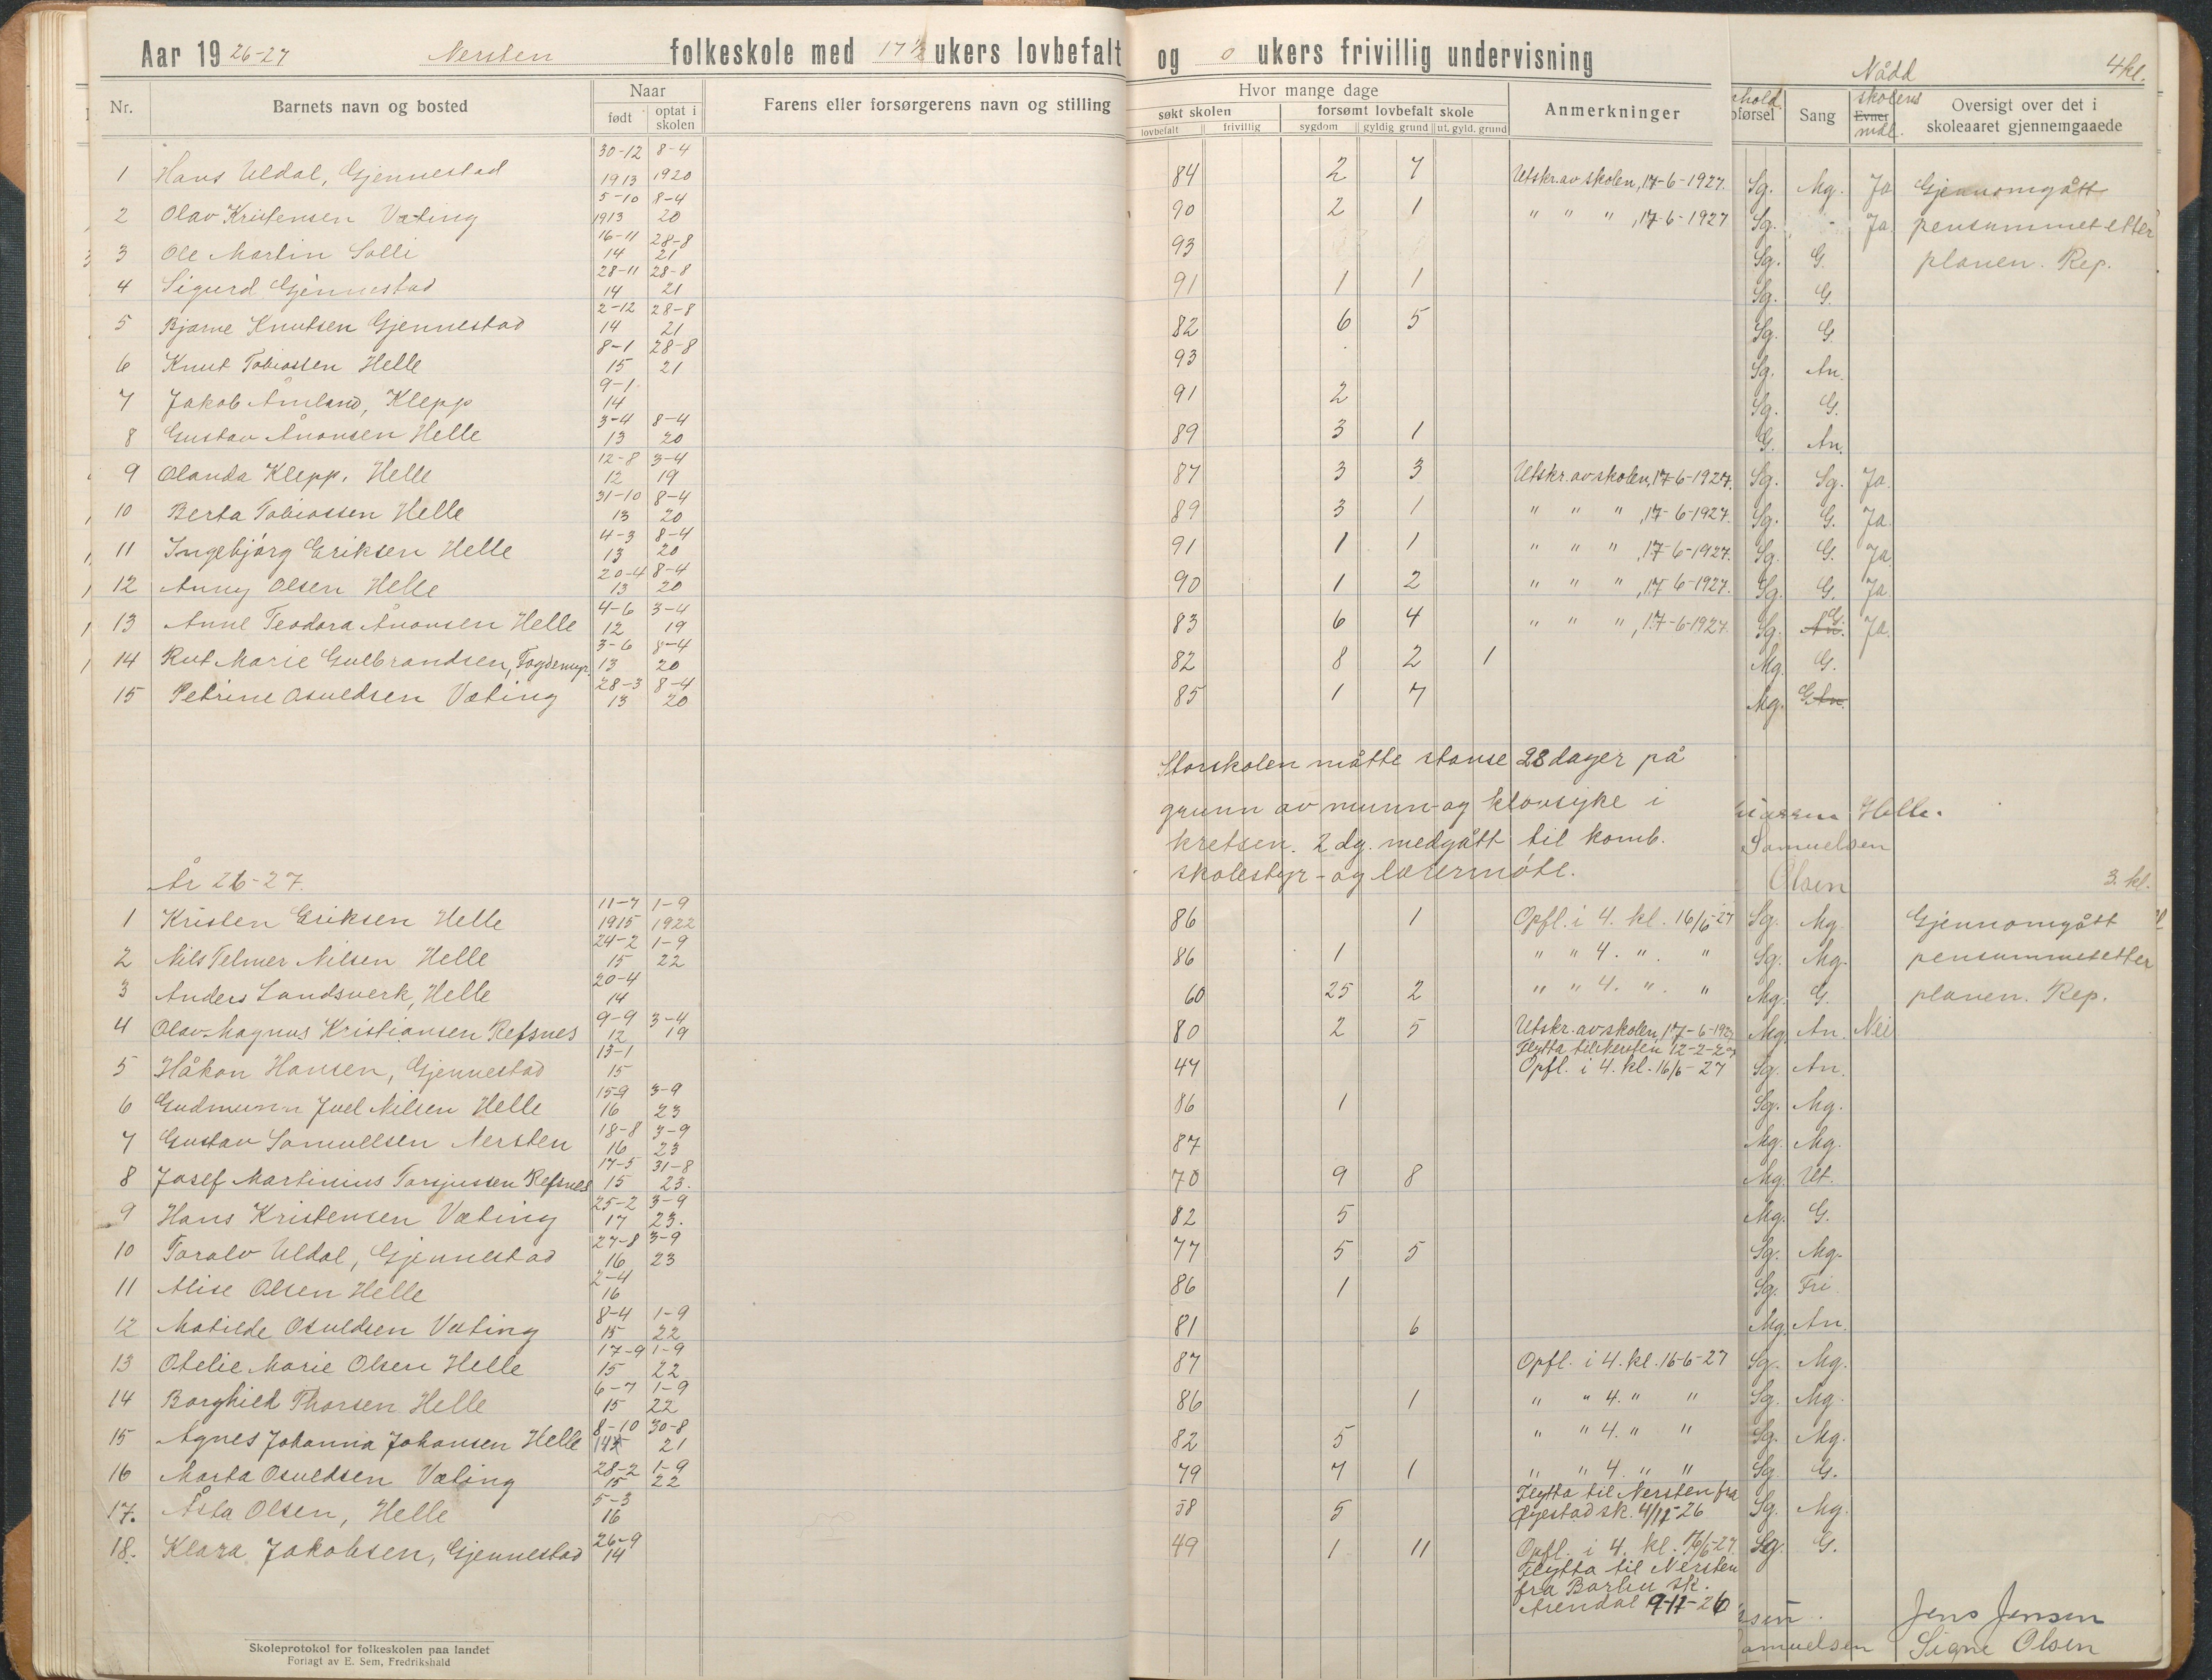 Aar 1926-27 Nersten folkeskole med 17 1/2 ukers lovbefalt og 0 ukers frivillig undervisning
Nådd 4 kl.
Nr. Barnets navn og bosted Naar født optat i skolen Farens eller forsørgerens navn og stilling Hvor mange dage søkt skolen lovbefalt frivillig forsømt lovbefalt skole sygdom gyldig grund ut. gyld. grund Anmerkninger Sang skolens Evner mål. Oversigt over det i skoleaaret gjennemgaaede
1 Hans Uldal, Gjennestad 30-12 1913 8-4 1920 84 2 7 Utskr. av skolen, 17-6-1927. Sg. Mg. Ja Gjennomgått
2 Olav Kristensen Væting 5-10 1913 8-4 20 90 2 1 " " " , 17-6-1927 Sg. - Ja pensummet etter
3 Ole Martin Solli 16-11 14 28-8 21 93 Sg. G. planen. Rep.
4 Sigurd Gjennestad 28-11 14 28-8 21 91 1 1 Sg. G.
5 Bjarne Knutsen Gjennestad 2-12 14 28-8 21 82 6 5 Sg. G.
6 Knut Tobiassen Helle 8-1 15 28-8 21 93 Sg. An.
7 Jakob Åmland, Klepp 9-1 14 91 2 Sg. G.
8 Gustav Ånonsen Helle 3-4 13 8-4 20 89 3 1 G. An.
9 Olanda Klepp, Helle 12-8 12 3-4 19 87 3 3 Utskr. av skolen, 17-6-1927. Sg. Sg. Ja.
10 Berta Tobiassen Helle 31-10 13 8-4 20 89 3 1 " " " , 17-6-1927. Sg. G. Ja.
11 Ingebjørg Eriksen Helle 4-3 13 8-4 20 91 1 1 " " " , 17-6-1927. Sg. G. Ja
12 Anny Olsen Helle 20-4 13 8-4 20 90 1 2 " " " , 17-6-1927. Sg. G. Ja
13 Anne Teodora Ånonsen Helle 4-6 12 3-4 19 83 6 4 " " " , 17-6-1927. Sg. An. G. Ja.
14 Rut Marie Gulbrandsen, Fogdemyr. 3-6 13 8-4 20 82 8 2 1 Mg. G.
15 Petrine Osuldsen Væting 28-3 13 8-4 20 85 1 7 Mg. G An.
Storskolen måtte stanse 28 dager på
grunn av munn- og klovsyke i
kretsen. 2 dg. medgått til komb.
skolestyr- og lærermøte.
Helle.
Samuelsen
Olsen
År 26-27. 3. kl.
1 Kristen Eriksen Helle 11-7 1915 1-9 1922 86 1 Opfl. i 4. kl. 16/6-27 Sg. Mg. Gjennomgått
2 Nils Telmer Nilsen Helle 24-2 15 1-9 22 86 1 " " 4. " . " Sg. Mg. pensummet etter
3 Anders Landsverk, Helle 20-4 14 60 25 2 " " 4. " . " Mg. G. planen. Rep.
4 Olav Magnus Kristiansen Refsnes 9-9 12 3-4 19 80 2 5 Utskr. av skolen, 17-6-1927 Mg. An. Nei
5 Håkon Hansen, Gjennestad 13-1 15 47 Flytta til Nersten 12-2-27 Opfl. i 4. kl. 16/6-27 Sg. An.
6 Gudmunn Juel Nilsen Helle 15-9 16 3-9 23 86 1 Sg. Mg.
7 Gustav Samuelsen Nersten 18-8 16 3-9 23 87 Mg. Mg.
8 Josef Martinius Torjussen Refsnes 17-5 15 31-8 23. 70 9 8 Mg. Ut.
9 Hans Kristensen Væting 25-2 17 3-9 23. 82 5 Mg. G.
10 Toralv Uldal, Gjennestad 27-8 16 3-9 23 77 5 5 Sg. Mg.
11 Alise Olsen Helle 2-4 16 86 1 Sg. Fri
12 Matilde Osuldsen Væting 8-4 15 1-9 22 81 6 Mg. An.
13 Otelie Marie Olsen Helle 17-9 15 1-9 22 87 Opfl. i 4. kl. 16-6-27 Sg. Mg.
14 Borghild Thorsen Helle 6-7 15 1-9 22 86 1 " " 4. " " Sg. Mg.
15 Agnes Johanna Johansen Helle 8-10 14 30-8 21 82 5 " " 4. " " Sg. Mg.
16 Marta Osuldsen Væting 28-2 15 1-9 22 79 7 1 " " 4. " " Sg. G.
17. Åsta Olsen, Helle 5-3 16 58 5 Flytta til Nersten fra Øyestad sk. 4/11-26 Sg. Mg.
18. Klara Jakobsen, Gjennestad 26-9 14 49 1 11 Opfl. i 4. kl. 16/6-27. Sg. G.
Flytta til Nersten
fra Barbu sk.
Arendal 9-11-26
Jens Jensen
Samuelsen Signe Olsen
Skoleprotokol for folkeskolen paa landet
Forlagt av E. Sem, Fredrikshald